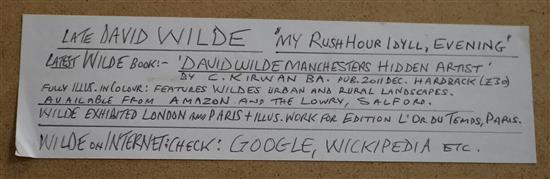 LATE DAVID WILDE "MY RUSH HOUR IDYLL, EVENING"
LATEST WILDE BOOK:- 'DAVID WILDE MANCHESTERS HIDDEN ARTIST'
BY C. KIRWAN BA. PUB. 2011 DEC. HARDBACK (£30)
FULLY ILLUS. IN COLOUR: FEATURES WILDES URBAN AND RURAL LANDSCAPES.
AVAILABLE FROM AMAZON AND THE LOWRY, SALFORD.
WILDE EXHIBITED LONDON AND PARIS + ILLUS. WORK FOR EDITION L'OR DU TEMPS, PARIS.
WILDE ON INTERNET: CHECK: GOOGLE, WICKIPEDIA ETC.